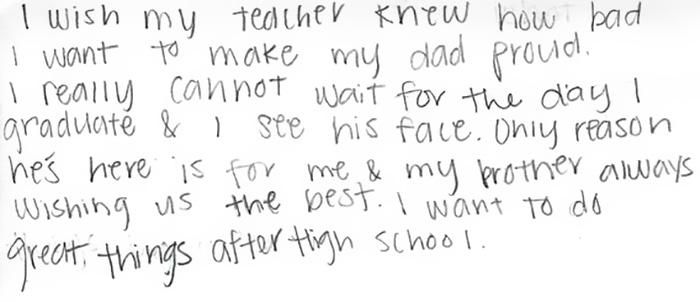 I wish my teacher knew how bad
I want to make my dad proud.
I really cannot wait for the day I
graduate & I see his face. Only reason
he's here is for me & my brother always
wishing us the best. I want to do
great things after High school.